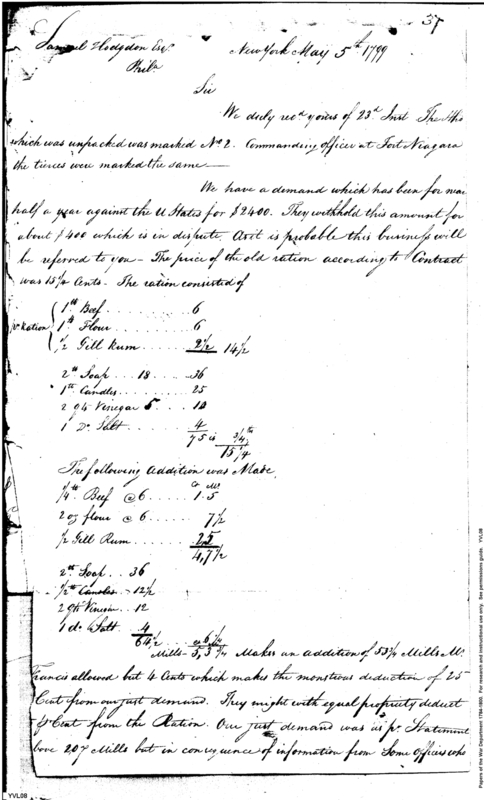 37
Samuel Hodgdon Esqr New York May 5th 1799
Phila
Sir
We duly recd yours of 23d Inst The
which was unpacked was marked No 2. Commanding officer at Fort Niagara
the tierces were marked the same —
We have a demand which has been for near
half a year against the U States for $2400. They withhold this amount for
about $400 which is in dispute. As it is probable this business will
be referred to you — The price of the old ration according to Contract
was 15 1/2 Cents. The ration consisted of
1 lb Beef . . . . . . . . . 6
pr Ration 1 lb Flour . . . . . . . . . 6
1/2 Gill Rum . . . . . 2 1/2 14 1/2
2 lb Soap . . . 18 . . . . 36
1 lb Candles . . . . . . . 25
2 qts Vinegar 5 . . . 10
1 Do Salt . . . . . . . . 4
75 is 3/4 th
15 1/4
The following addition was Made
C Ms
1/4 lb Beef @ 6 . . . . . 1.5
2 oz flour @ 6 . . . . . 7 1/2
1/2 Gill Rum . . . . . . 2.5
4,7 1/2
2 lb Soap . . 36
1/2 lb Candles — 12 1/2
2 qts Vinegar . . 12
1 do Salt . . 4
64 1/2 . . . 6
Mills Makes an addition of 53 3/4 Mills Mr
Francis allowed but 4 Cents which makes the monstrous deduction of 25
Cent from our just demand. They might with equal propriety deduct
Cent from the Ration. Our just demand was as pr Statement
bove 207 Mills but in consequence of information from Some Officers who
YVL08
Papers of the War Department 1784-1800. For research and instructional use only. See permissions guide. YVL08